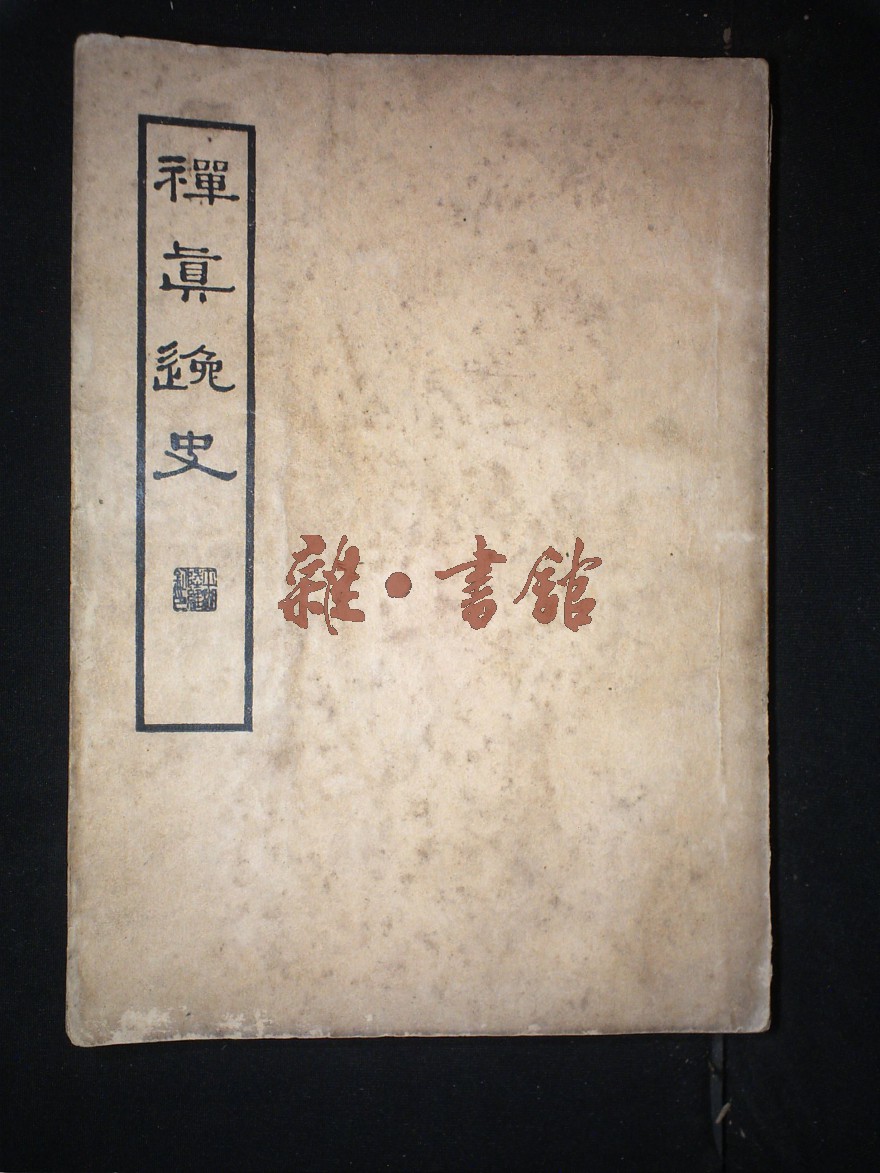 禪眞逸史
雜·書館